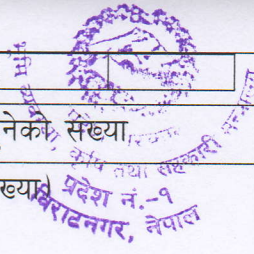 नेको संख्या
ख्या)
भूमि व्यवस्था, कृषि तथा सहकारी मन्त्रालय
प्रदेश नं.-१
विराटनगर, नेपाल